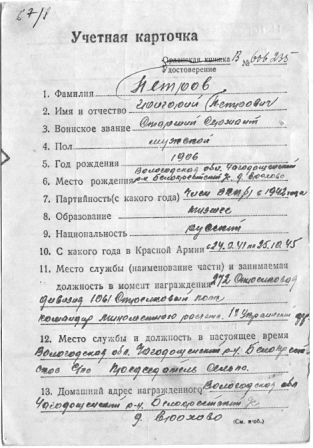 67/8
Учетная карточка
Орденская книжка В № 606235
Удостоверение
1. Фамилия Петров
2. Имя и отчество Григорий Петрович
3. Воинское звание Старший Сержант
4. Пол мужской
5. Год рождения 1906
Вологодская обл. Чагодощенский
6. Место рождения р-н Белокрестский с/с, д.
7. Партийность (с какого года) Член ВКП/б с 1942 года
8. Образование низшее
9. Национальность русский
10. С какого года в Красной Армии с 24.8.41 по 25.10.45
11. Место службы (наименование части) и занимаемая
должность в момент награждения 272 Стрелковая
дивизия 1061 Стрелковый полк
командир минометного расчета. 1й Украинский фр.
12. Место службы и должность в настоящее время
Вологодская обл. Чагодощенский р-н, Белокрест-
Председатель
13. Домашний адрес награжденного Вологодская обл
Чагодощенский р-н, Белокрестский с/с
д.
(См. н-об.)